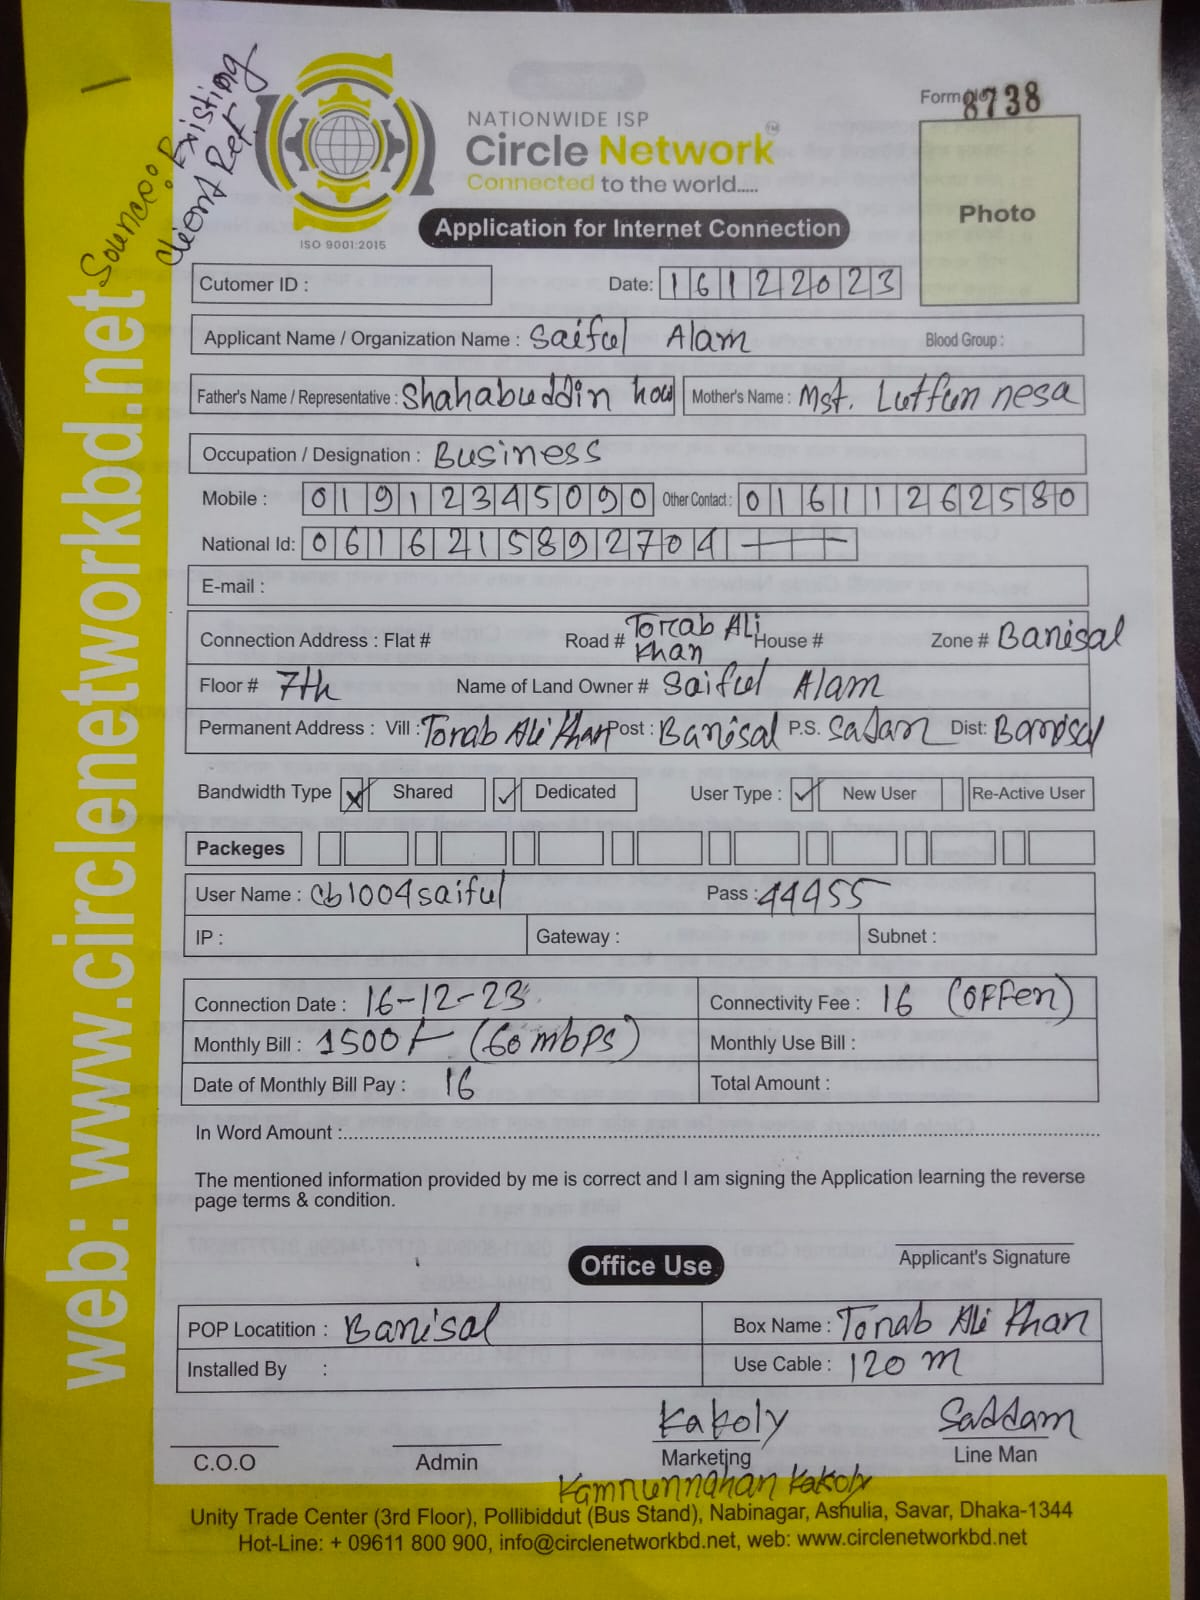 Source: Existing
Client Ref.
NATIONWIDE ISP
Circle Network™
Connected to the world.....
ISO 9001:2015
Form No 8738
Photo
Application for Internet Connection
Cutomer ID :
Date: 16122023
Applicant Name / Organization Name : Saiful Alam Blood Group :
Father's Name / Representative : Shahabuddin Mother's Name : Mst. Lutfun nesa
Occupation / Designation : Business
Mobile : 01912345090 Other Contact : 01611262580
National Id: 0616215892704
E-mail :
Connection Address : Flat # Road # Torab Ali Khan House # Zone # Barisal
Floor # 7th Name of Land Owner # Saiful Alam
Permanent Address : Vill : Torab Ali Khan Post : Barisal P.S. Sadar Dist: Barisal
Bandwidth Type Shared Dedicated User Type : New User Re-Active User
Packeges
User Name : cb1004saiful Pass : 44455
IP : Gateway : Subnet :
Connection Date : 16-12-23 Connectivity Fee : 16 (OFFer)
Monthly Bill : 1500/- (60 mbps) Monthly Use Bill :
Date of Monthly Bill Pay : 16 Total Amount :
In Word Amount :
The mentioned information provided by me is correct and I am signing the Application learning the reverse
page terms & condition.
Applicant's Signature
Office Use
POP Locatition : Barisal Box Name : Torab Ali Khan
Installed By : Use Cable : 120 m
Kakoly Saddam
C.O.O Admin Marketing Line Man
Kamrunnahar Kakoly
Unity Trade Center (3rd Floor), Pollibiddut (Bus Stand), Nabinagar, Ashulia, Savar, Dhaka-1344
Hot-Line: + 09611 800 900, info@circlenetworkbd.net, web: www.circlenetworkbd.net
web: www.circlenetworkbd.net